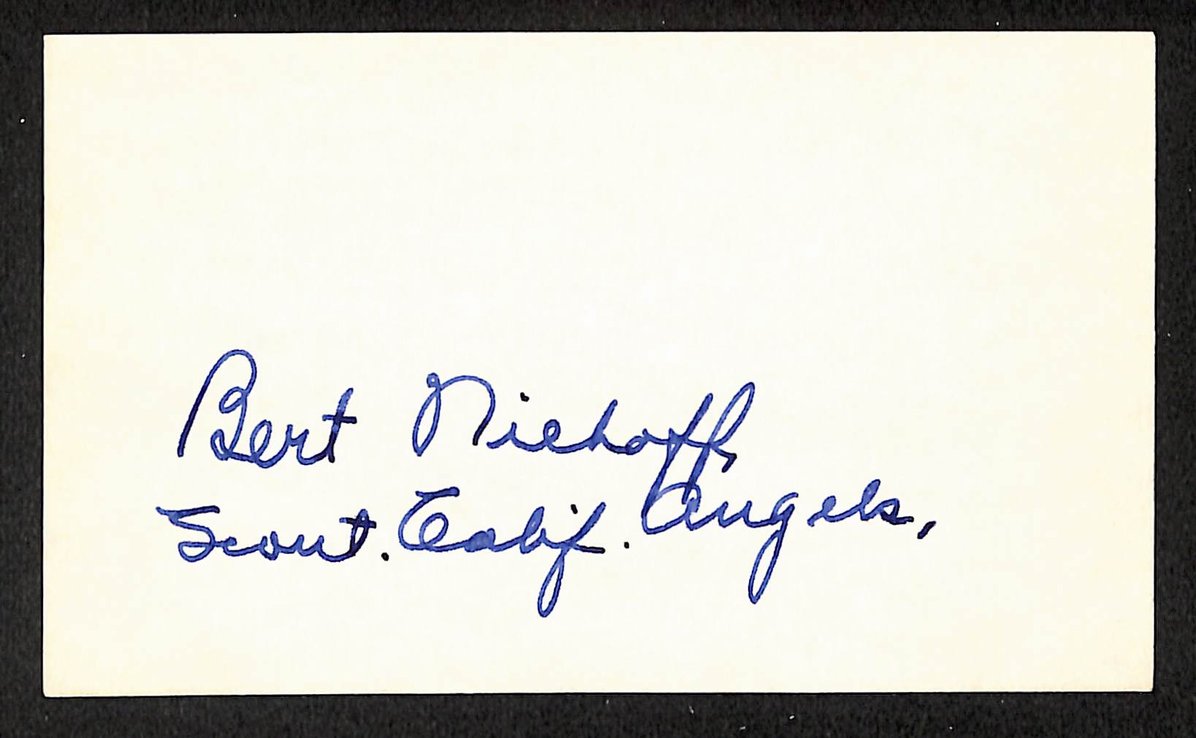 Bert Niehoff,
Scout. Calif. Angels,